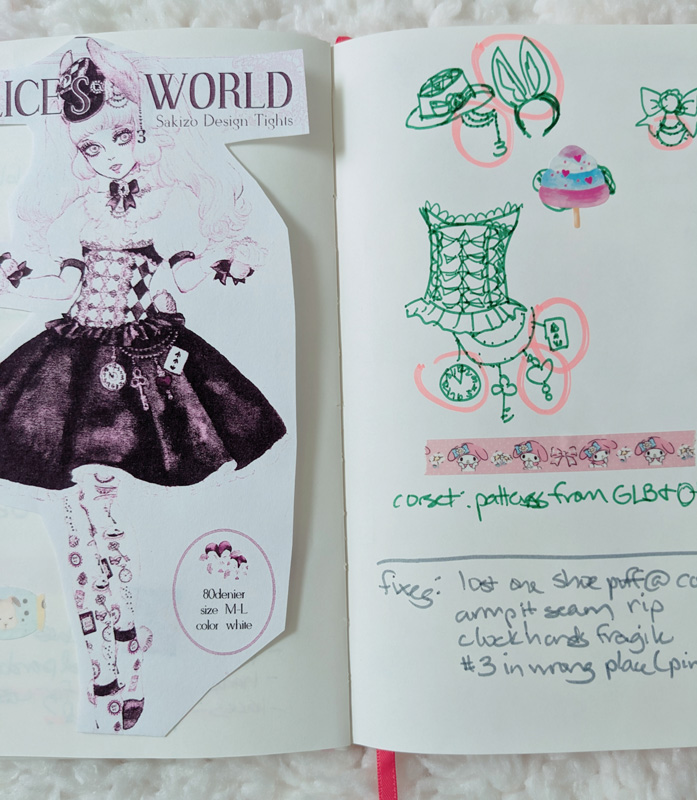 LICE'S WORLD
Sakizo Design Tights
3
80denier
size M-L
color white
3
corset: patterns from GLB +
fixes: lost one shoe puff @ co
armpit seam rip
clock hands fragile
#3 in wrong place (pin